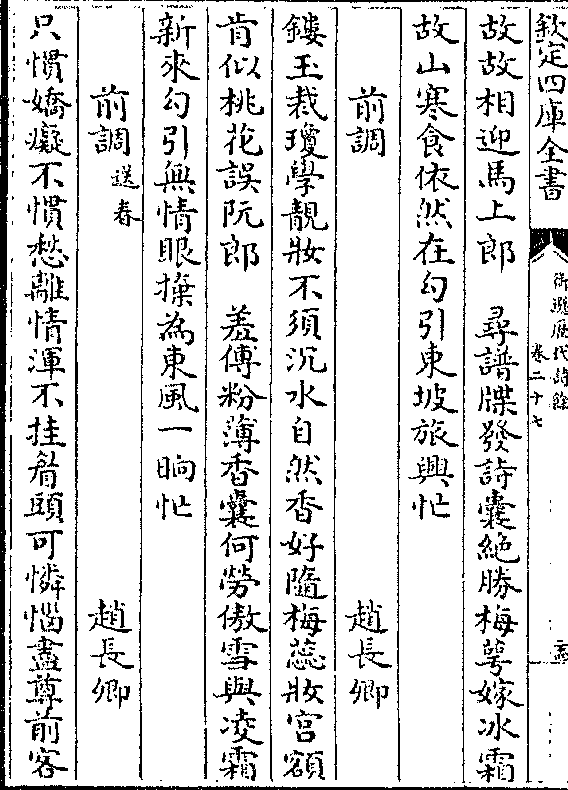 欽定四庫全書
御選歷代詩餘
卷二十七
故故相迎馬上郎　尋譜牒發詩囊絶勝梅萼嫁冰霜
故山寒食依然在勾引東坡旅興忙
前調　趙長卿
鏤玉裁瓊學靚妝不須沉水自然香好隨梅蕊妝宮額
肯似桃花誤阮郎　羞傅粉薄香囊何勞傲雪與凌霜
新來勾引無情眼搽為東風一晌忙
前調送春　趙長卿
只慣嬌癡不慣愁離情渾不挂眉頭可憐惱盡尊前客